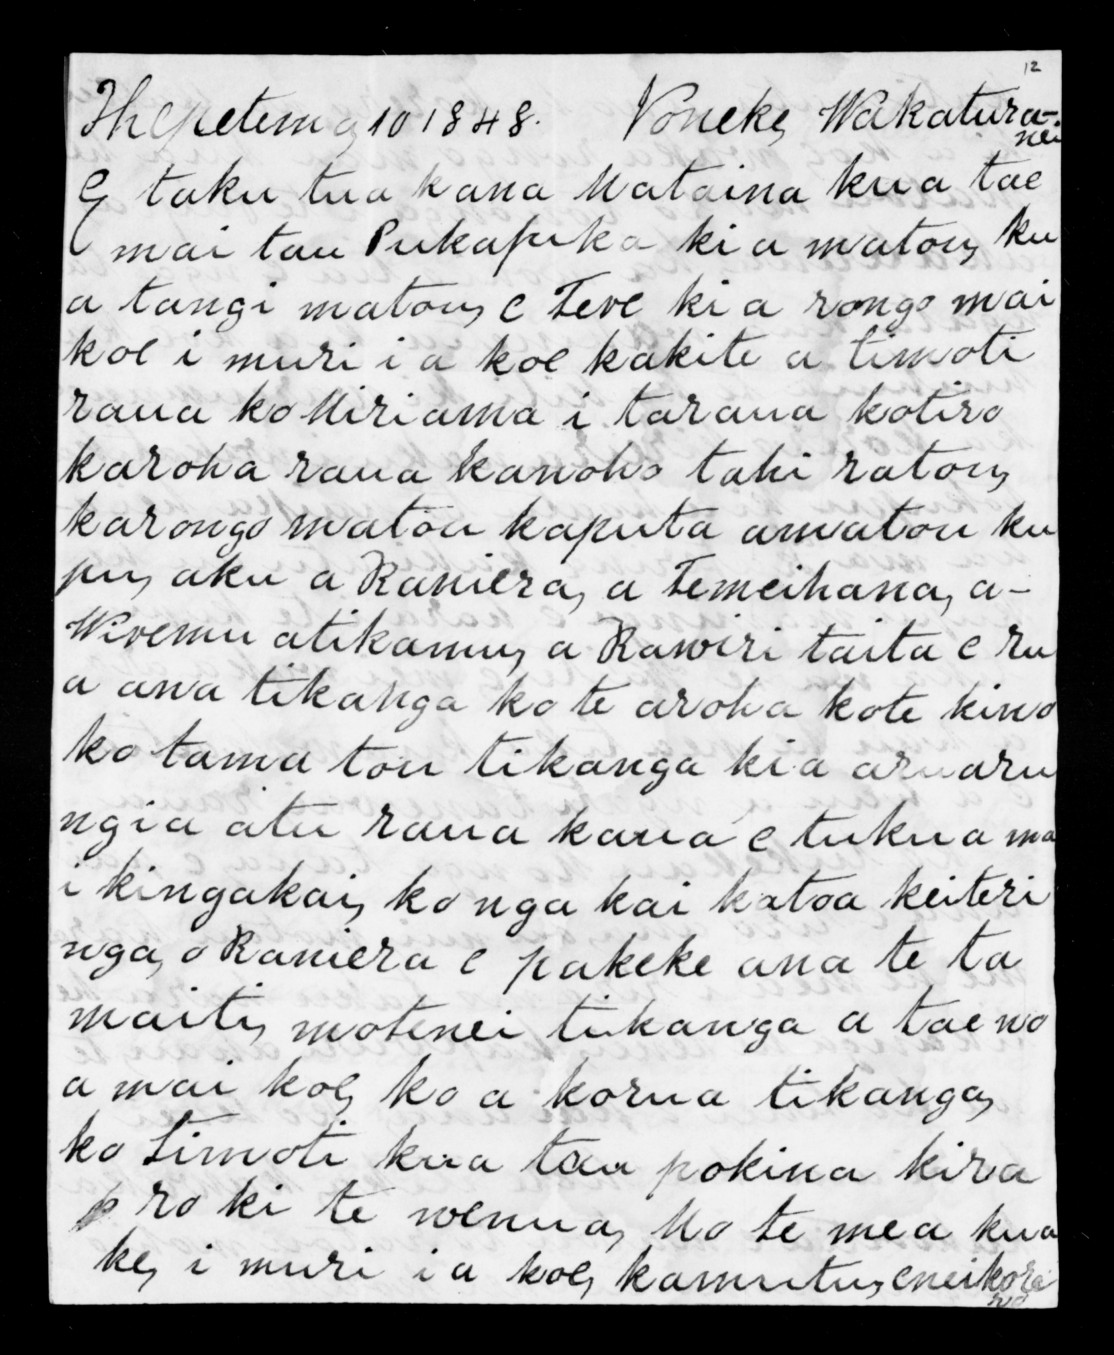 12
Hepetema 10 1848. Poneke, Wakatura-
nei
E taku tuakana Mataina kua tae
mai tau Pukapuka ki a matou, ku
a tangi matou, e Teve ki a rongo mai
koe i muri i a koe kakite a timoti
raua ko Miriama i taraua kotiro
karoha raua kanoho tahi ratou,
karongo matou kaputa amatou ku
pu, aku a Raniera, a Temeihana, a-
Wiremu atikamu, a Rawiri taita e ru
a ana tikanga ko te aroha kote kino
ko tama tou tikanga kia aruaru
ngia atu raua kaua e tukua ma
i kingakai, ko nga kai katoa keiteri
nga, o Raniera e pakeke ana te ta
maiti, motenei tikanga a tae no
a mai koe, ko a korua tikanga,
ko Timoti kua tau pokina kira
ro ki te wenua, No te mea kua
ke, i muri i a koe, kamutu, eneikore
ro